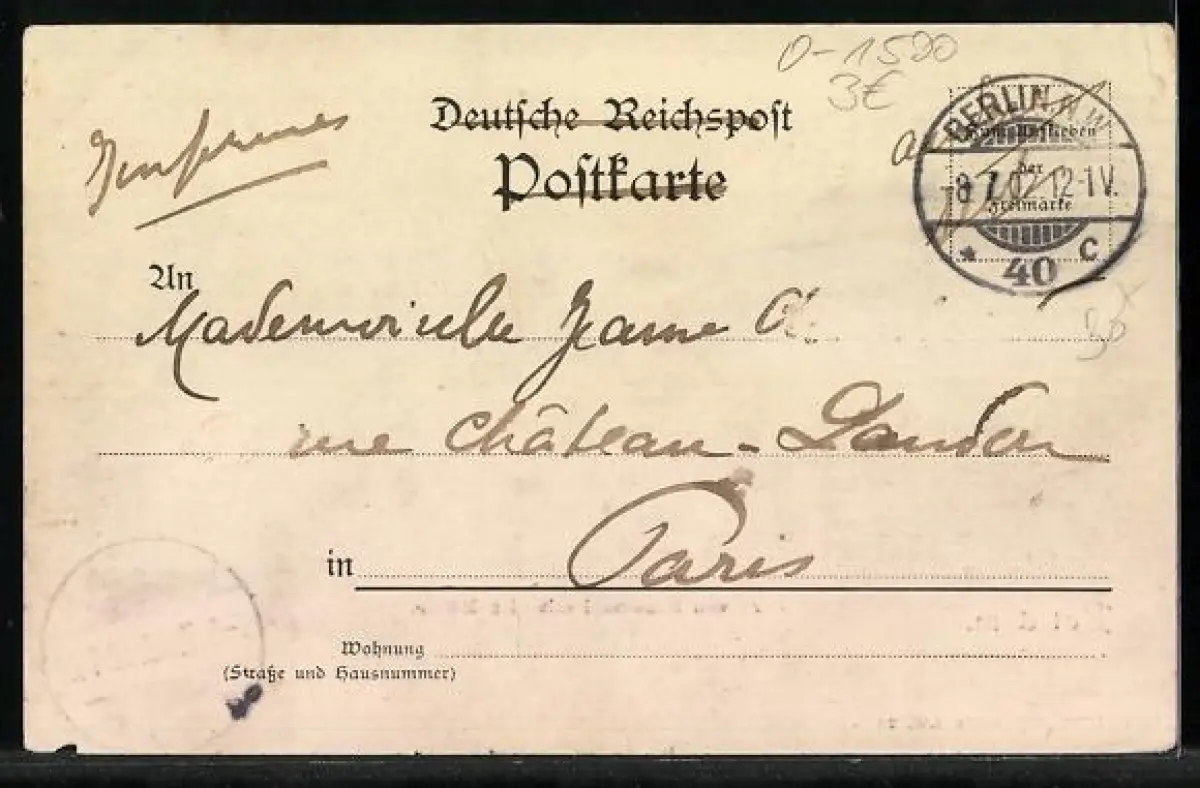 0-1500
3€
Deutsche Reichspost
Postkarte
BERLIN
Zum Aufkleben
der
Freimarke
-8 7.02 12-1V.
* 40 C
An
Mademoiselle Jeanne
rue Château-Landon
in Paris
Wohnung
(Straße und Hausnummer)